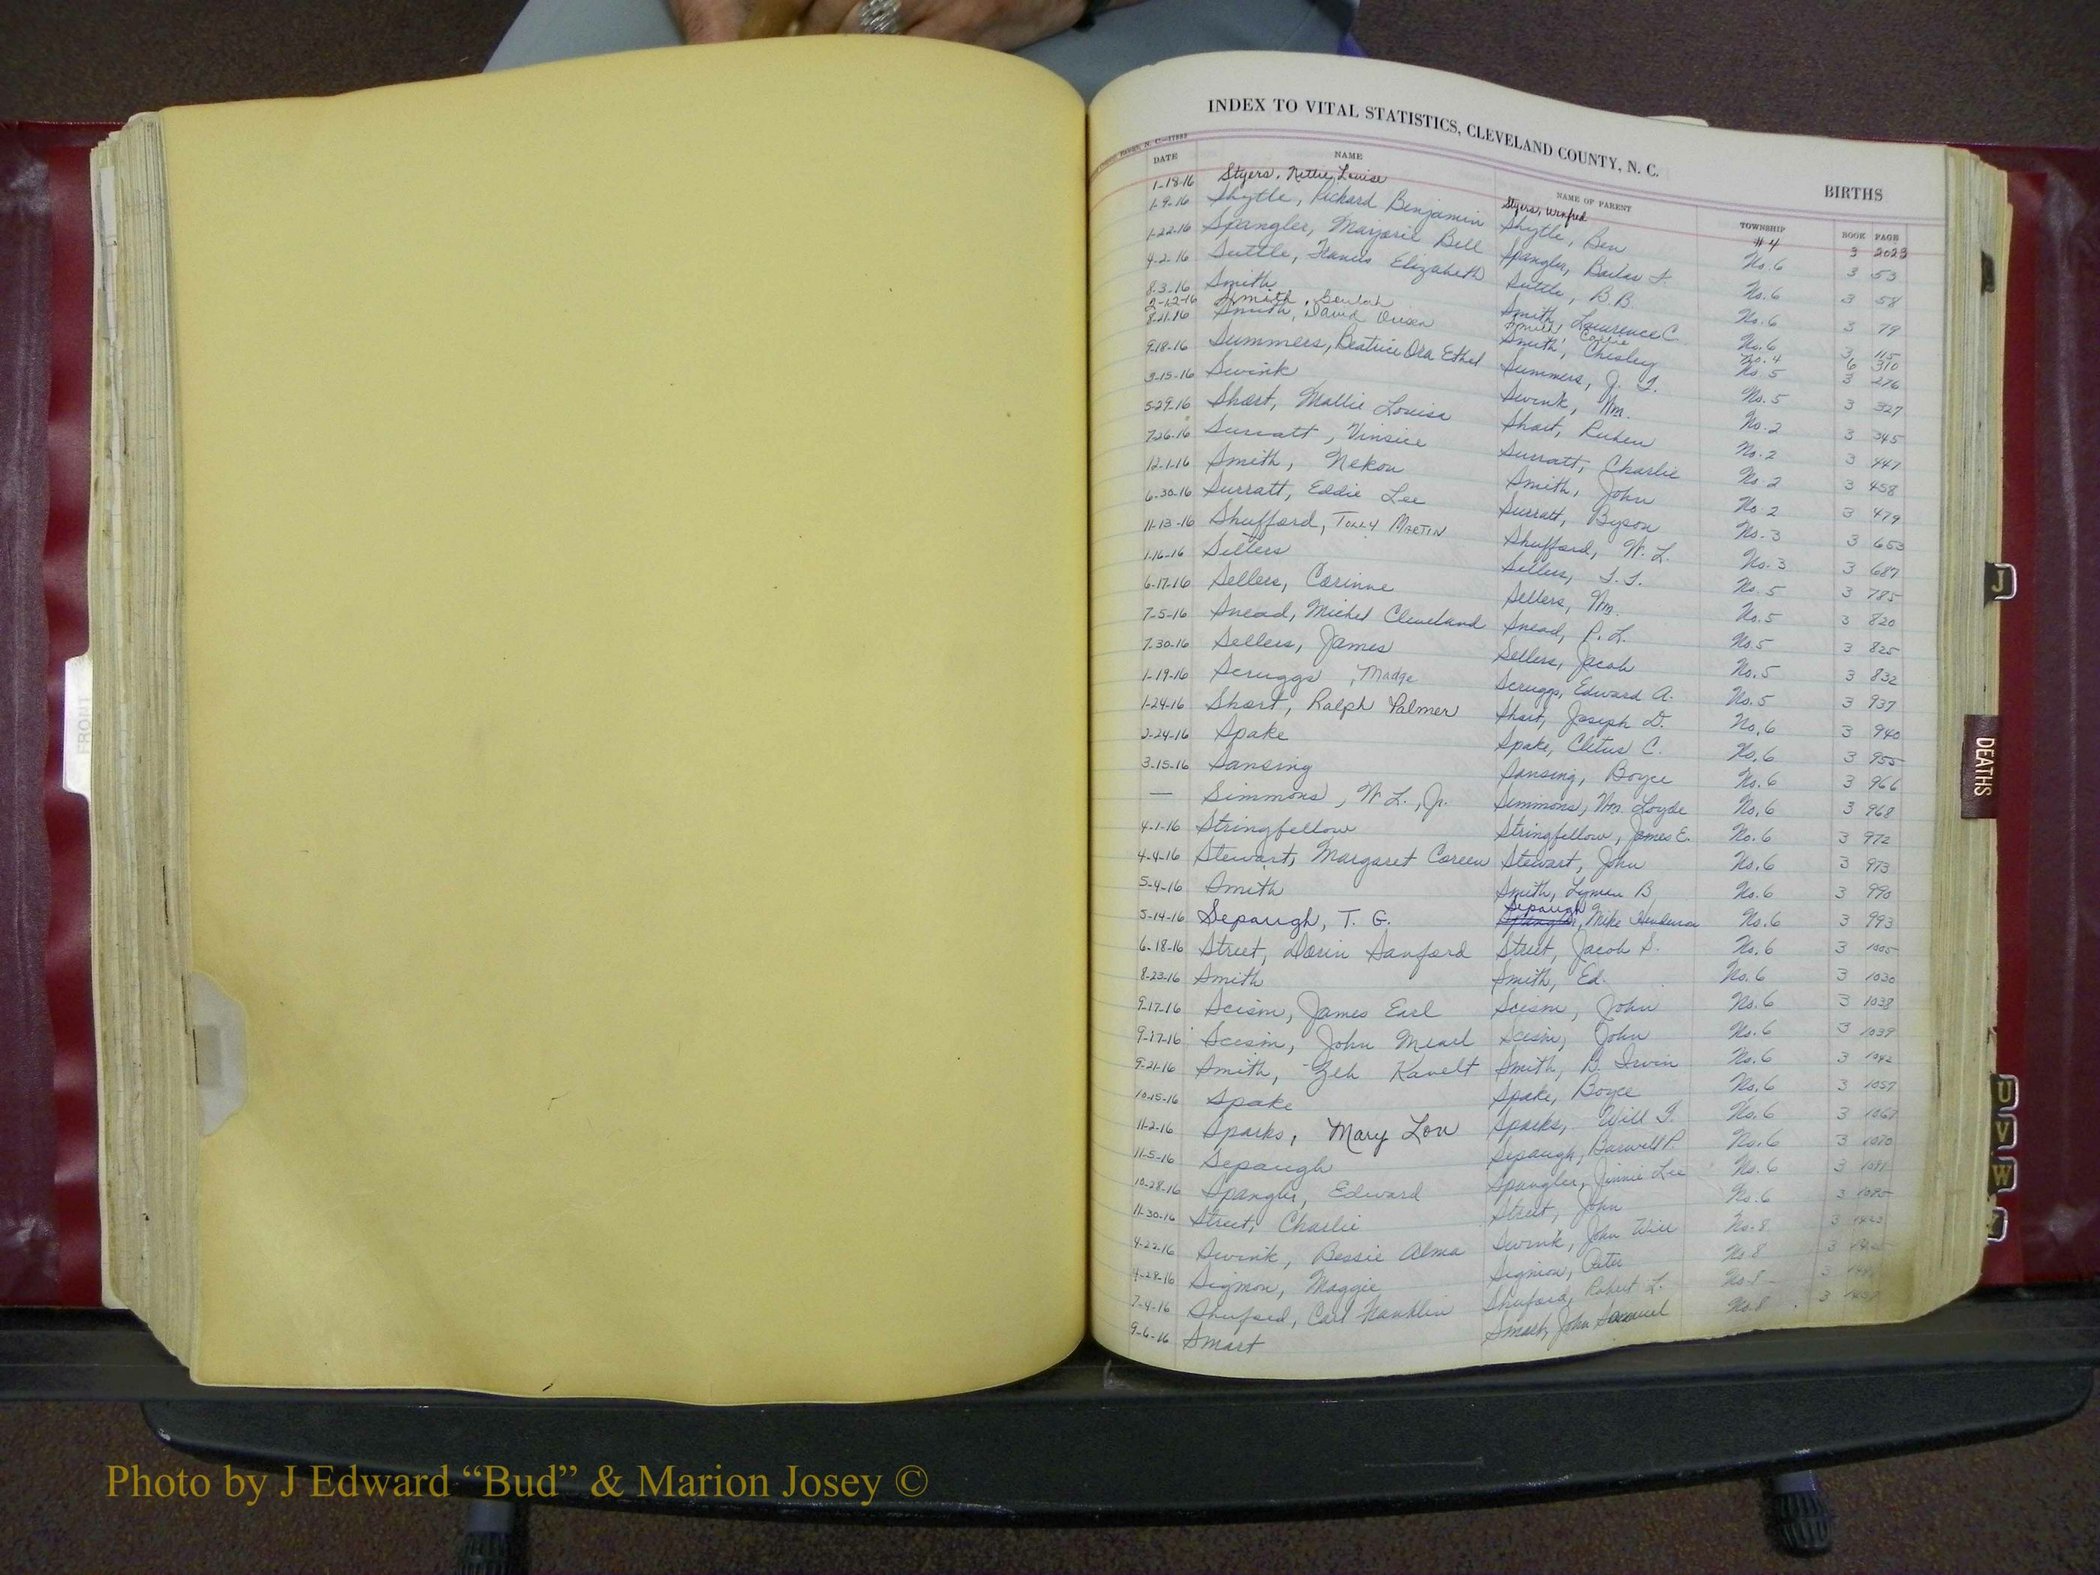 INDEX TO VITAL STATISTICS, CLEVELAND COUNTY, N. C.
BIRTHS
DATE NAME NAME OF PARENT TOWNSHIP BOOK PAGE
1-18-16 Styers, Nettie Louise Styers, Winfred #4 3 2023
1-9-16 Shytle, Rickard Benjamin Shytle, Ben No. 6 3 53
1-22-16 Spangler, Marjorie Bell Spangler, No. 6 3 58
4-2-16 Suttle, Francis Elizabeth Suttle, B. B. No. 6 3 79
8-3-16 Smith Smith, Lawrence C. No. 6 3 115
2-12-16 Smith, Beulah Smith, No. 4 6 310
8-21-16 Smith, David Smith, Chesley No. 5 3 276
9-18-16 Summers, Beatrice Ora Ethel Summers, J. No. 5 3 327
3-15-16 Swink Swink, Wm. No. 2 3 345
5-29-16 Short, Mallie Louisa Short, Reuben No. 2 3 447
7-26-16 Surratt, Vinsice Surratt, Charlie No. 2 3 458
12-1-16 Smith, Nekou Smith, John No. 2 3 479
6-30-16 Surratt, Eddie Lee Surratt, Byson No. 3 3 653
11-13-16 Shufford, TOLLY MARTIN Shufford, W. L. No. 3 3 687
1-16-16 Sellers Sellers, No. 5 3 785
6-17-16 Sellers, Corinne Sellers, Wm. No. 5 3 820
7-5-16 Snead, Michel Cleveland Snead, P. L. No. 5 3 825
7-30-16 Sellers, James Sellers, Jacob No. 5 3 832
1-19-16 Scruggs, Madge Scruggs, Edward A. No. 5 3 937
1-24-16 Short, Ralph Palmer Short, Joseph D. No. 6 3 940
2-24-16 Spake Spake, Cletus C. No. 6 3 955
3-15-16 Sansing Sansing, Boyce No. 6 3 966
— Simmons, W. L., Jr. Simmons, Wm. Loyde No. 6 3 968
4-1-16 Stringfellow Stringfellow, James E. No. 6 3 972
4-4-16 Stewart, Margaret Coreen Stewart, John No. 6 3 973
5-4-16 Smith Smith, Lyman B. No. 6 3 990
5-14-16 Sepaugh, T. G. Sepaugh, Mike Henderson No. 6 3 993
6-18-16 Street, Dorin Sanford Street, Jacob S. No. 6 3 1005
8-23-16 Smith Smith, Ed. No. 6 3 1030
9-17-16 Scism, James Earl Scism, John No. 6 3 1038
9-17-16 Scism, John Mearl Scism, John No. 6 3 1039
9-21-16 Smith, Zeb Kavelt Smith, B. Irvin No. 6 3 1042
10-15-16 Spake Spake, Boyce No. 6 3 1057
11-2-16 Sparks, Mary Lou Sparks, Will No. 6 3 1067
11-5-16 Sepaugh Sepaugh, No. 6 3 1070
10-28-16 Spangler, Edward Spangler, Jimmie Lee No. 6 3
11-30-16 Street, Charlie Street, John No. 6 3
4-22-16 Swink, Bessie Alma Swink, John Will No. 8 3
4-28-16 Sigmon, Maggie Sigmon, Peter No. 8 3
7-4-16 Shuford, Carl Franklin Shuford, Robert L. No. 8 3
9-6-16 Smart Smart, John Samuel No. 8 3
FRONT
J
DEATHS
U
V
W
Y
Photo by J Edward “Bud” & Marion Josey ©